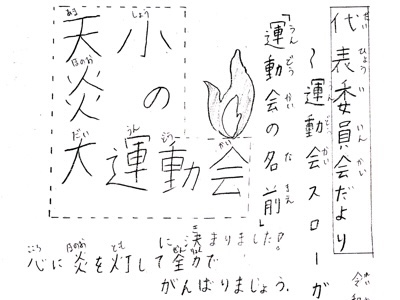 代表委員会だより
令和
〜運動会スローガ
「運動会の名前」
天小
炎の
大運動会
に決まりました!
心に炎を灯して全力で
がんばりましょう.